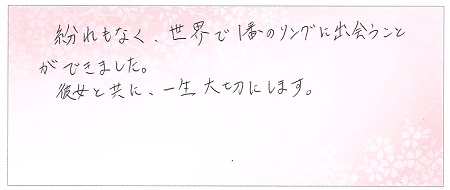 紛れもなく、世界で1番のリングに出会うこと
ができました。
彼女と共に、一生大切にします。